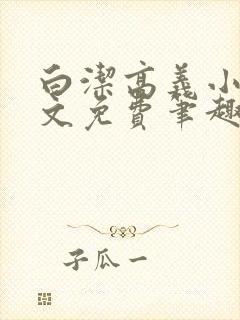 白潔高義小
文免費筆趣
子瓜一